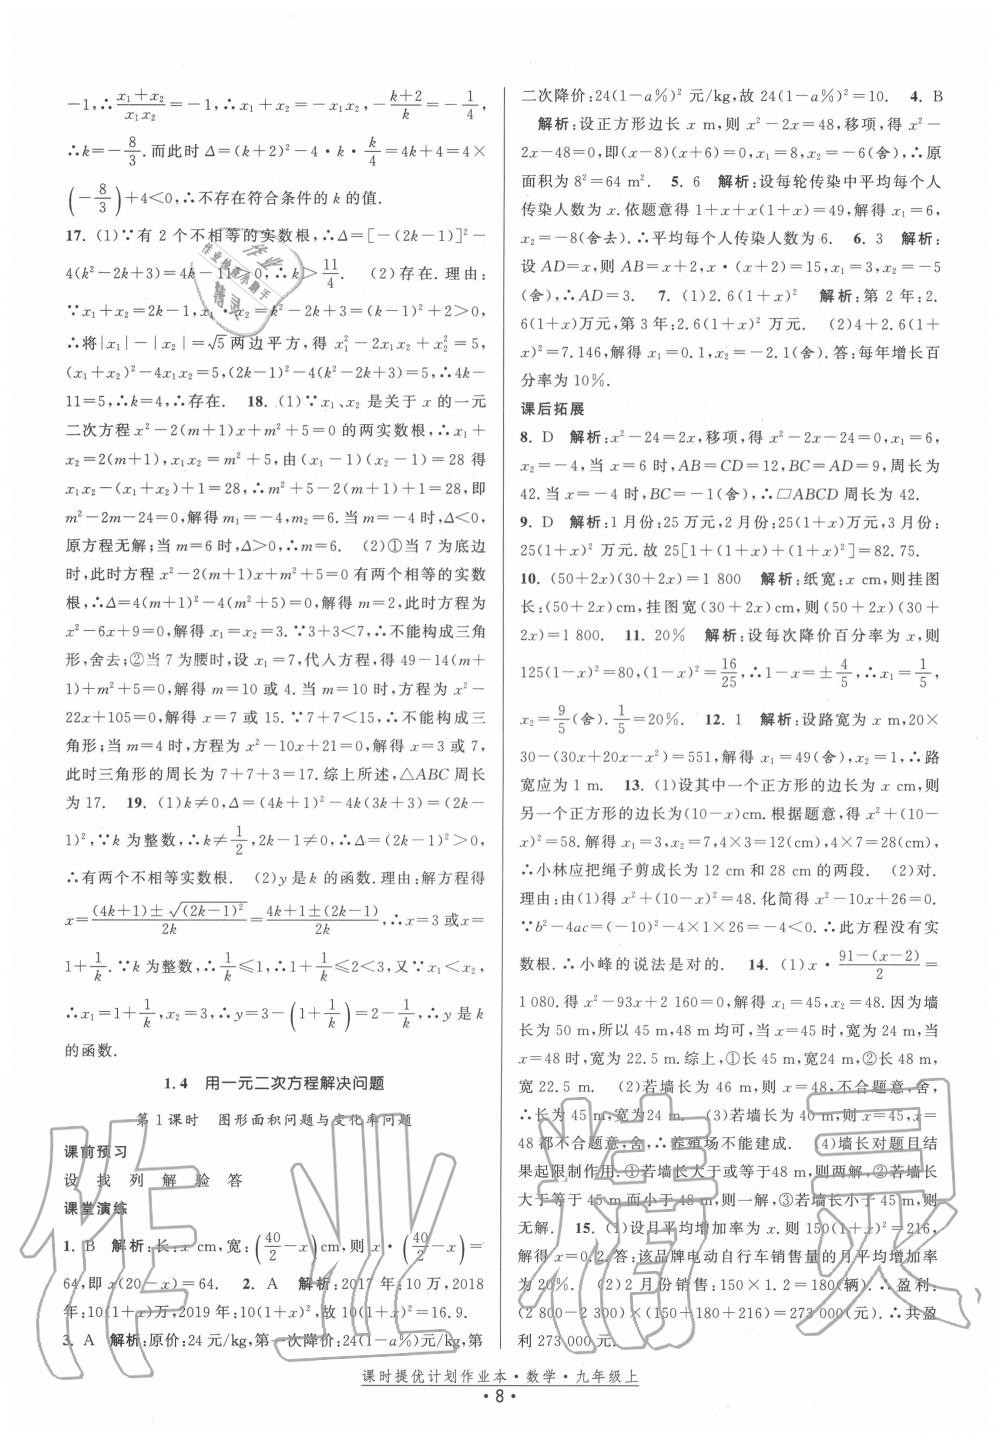 -1,∴(x₁+x₂)/(x₁x₂)=-1,∴x₁+x₂=-x₁x₂,-(k+2)/k=-1/4,
∴k=-8/3.而此时Δ=(k+2)²-4·k·k/4=4k+4=4×
(-8/3)+4<0,∴不存在符合条件的k的值.
17. (1)∵有2个不相等的实数根,∴Δ=[-(2k-1)]²-
4(k²-2k+3)=4k-11>0,∴k>11/4. (2)存在.理由:
∵x₁+x₂=2k-1,x₁·x₂=k²-2k+3=(k-1)²+2>0,
∴将|x₁|-|x₂|=√5两边平方,得x₁²-2x₁x₂+x₂²=5,
(x₁+x₂)²-4x₁x₂=5,(2k-1)²-4(k²-2k+3)=5,∴4k-
11=5,∴k=4,∴存在. 18. (1)∵x₁、x₂是关于x的一元
二次方程x²-2(m+1)x+m²+5=0的两实数根,∴x₁+
x₂=2(m+1),x₁x₂=m²+5,由(x₁-1)(x₂-1)=28得
x₁x₂-(x₁+x₂)+1=28,∴m²+5-2(m+1)+1=28,即
m²-2m-24=0,解得m₁=-4,m₂=6.当m=-4时,Δ<0,
原方程无解;当m=6时,Δ>0,∴m=6. (2)①当7为底边
时,此时方程x²-2(m+1)x+m²+5=0有两个相等的实数
根,∴Δ=4(m+1)²-4(m²+5)=0,解得m=2,此时方程为
x²-6x+9=0,解得x₁=x₂=3.∵3+3<7,∴不能构成三角
形,舍去;②当7为腰时,设x₁=7,代人方程,得49-14(m+
1)+m²+5=0,解得m=10或4.当m=10时,方程为x²-
22x+105=0,解得x=7或15.∵7+7<15,∴不能构成三
角形;当m=4时,方程为x²-10x+21=0,解得x=3或7,
此时三角形的周长为7+7+3=17.综上所述,△ABC周长
为17. 19. (1)k≠0,Δ=(4k+1)²-4k(3k+3)=(2k-
1)²,∵k为整数,∴k≠1/2,2k-1≠0,∴Δ=(2k-1)²>0,
∴有两个不相等实数根. (2)y是k的函数.理由:解方程得
x=((4k+1)±√(2k-1)²)/2k=(4k+1±(2k-1))/2k,∴x=3或x=
1+1/k.∵k为整数,∴1/k≤1,∴1+1/k≤2<3,又∵x₁<x₂,
∴x₁=1+1/k,x₂=3,∴y=3-(1/k+1)=2-1/k,∴y是k
的函数.
1.4 用一元二次方程解决问题
第1课时 图形面积问题与变化率问题
课前预习
设 找 列 解 验 答
课堂演练
1. B 解析:长:x cm,宽:(40/2-x)cm,则x·(40/2-x)=
64,即x(20-x)=64. 2. A 解析:2017年:10万,2018
年:10(1+x)万,2019年:10(1+x)²,故10(1+x)²=16.9.
3. A 解析:原价:24元/kg,第一次降价:24(1-a%)元/kg,第
二次降价:24(1-a%)²元/kg,故24(1-a%)²=10. 4. B
解析:设正方形边长x m,则x²-2x=48,移项,得x²-
2x-48=0,即(x-8)(x+6)=0,x₁=8,x₂=-6(舍),∴原
面积为8²=64 m². 5. 6 解析:设每轮传染中平均每个人
传染人数为x.依题意得1+x+x(1+x)=49,解得x₁=6,
x₂=-8(舍去).∴平均每个人传染人数为6. 6. 3 解析:
设AD=x,则AB=x+2,x·(x+2)=15,x₁=3,x₂=-5
(舍),∴AD=3. 7. (1)2.6(1+x)² 解析:第2年:2.
6(1+x)万元,第3年:2.6(1+x)²万元. (2)4+2.6(1+
x)²=7.146,解得x₁=0.1,x₂=-2.1(舍).答:每年增长百
分率为10%.
课后拓展
8. D 解析:x²-24=2x,移项,得x²-2x-24=0,x₁=6,
x₂=-4,当x=6时,AB=CD=12,BC=AD=9,周长为
42.当x=-4时,BC=-1(舍),∴▱ABCD周长为42.
9. D 解析:1月份:25万元,2月份:25(1+x)万元,3月份:
25(1+x)²万元.故25[1+(1+x)+(1+x)²]=82.75.
10. (50+2x)(30+2x)=1 800 解析:纸宽:x cm,则挂图
长:(50+2x)cm,挂图宽(30+2x)cm,则(50+2x)(30+
2x)=1 800. 11. 20% 解析:设每次降价百分率为x,则
125(1-x)²=80,(1-x)²=16/25,∴1-x=±4/5,∴x₁=1/5,
x₂=9/5(舍).1/5=20%. 12. 1 解析:设路宽为x m,20×
30-(30x+20x-x²)=551,解得x₁=49(舍),x₂=1,∴路
宽应为1 m. 13. (1)设其中一个正方形的边长为x cm,则
另一个正方形的边长为(10-x)cm.根据题意,得x²+(10-
x)²=58.解得x₁=3,x₂=7,4×3=12(cm),4×7=28(cm),
∴小林应把绳子剪成长为12 cm和28 cm的两段. (2)对.
理由:由(1)得x²+(10-x)²=48.化简得x²-10x+26=0.
∵b²-4ac=(-10)²-4×1×26=-4<0.∴此方程没有实
数根.∴小峰的说法是对的. 14. (1)x·(91-(x-2))/2=
1 080.得x²-93x+2 160=0,解得x₁=45,x=48.因为墙
长为50 m,所以45 m,48 m均可,当x=45时,宽为24 m,当
x=48时,宽为22.5 m.综上,①长45 m,宽24 m,②长48 m,
宽22.5 m. (2)若墙长为46 m,则x=48,不合题意,舍,
∴长45 m,宽24 m. (3)若墙长为40 m,则x=45,x=
48都不合题意,舍,∴养殖场不能建成. (4)墙长对题目结
果起限制作用.①若墙长大于或等于48 m,则两解,②若墙长
大于等于45 m而小于48 m,则一解,③若墙长小于45 m,则
无解. 15. (1)设月平均增加率为x.则150(1+x)²=216,
解得x=0.2.答:该品牌电动自行车销售量的月平均增加率
为20%. (2)2月份销售:150×1.2=180(辆).∴盈利:
(2 800-2 300)×(150+180+216)=273 000(元),∴共盈
利273 000元.
课时提优计划作业本·数学·九年级上
·8·
作业精灵
作业检查小助手
作业
精灵